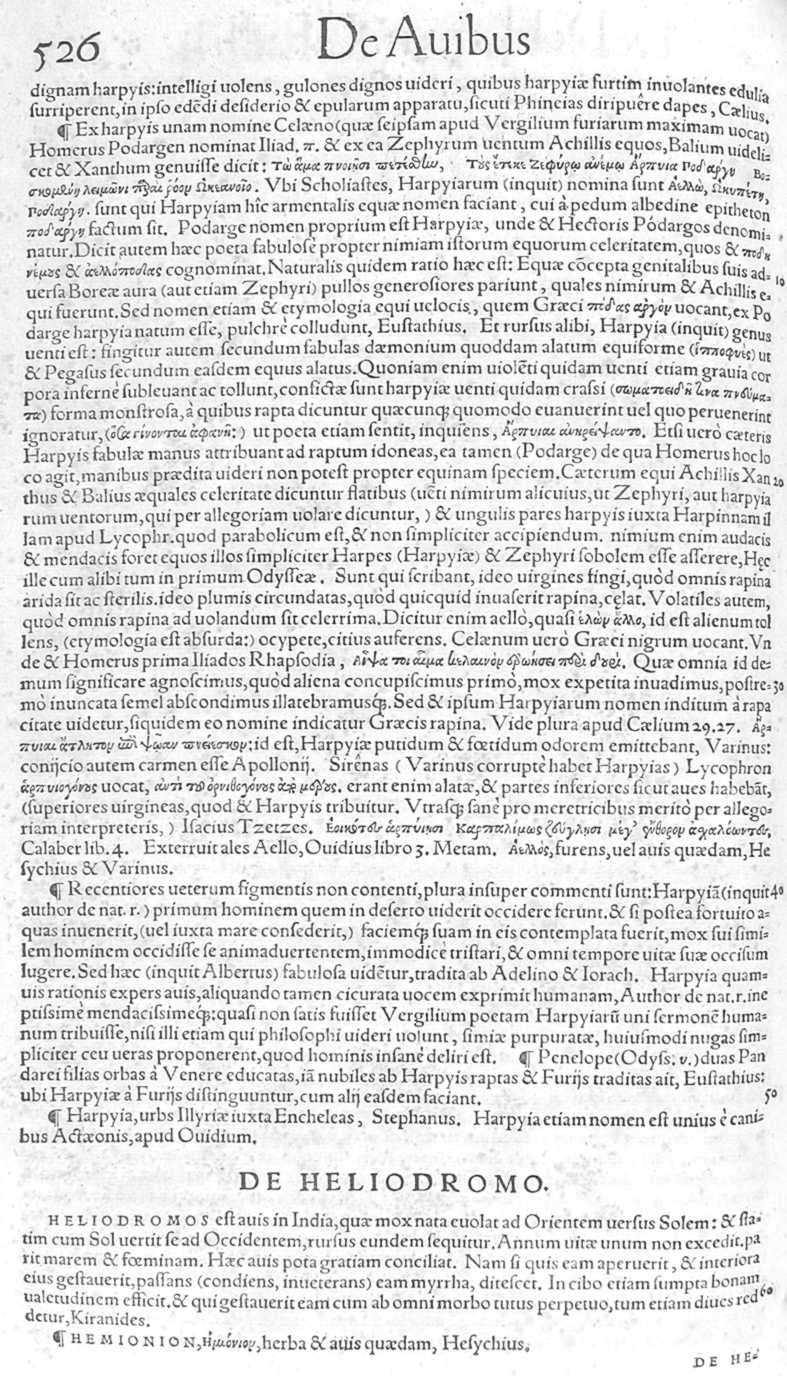 526 De Auibus
dignam harpyis: intelligi uolens, gulones dignos uideri, quibus harpyiæ furtim inuolantes edulia
surriperent, in ipso edēdi desiderio & epularum apparatu, sicuti Phincias diripuêre dapes, Cælius.
¶ Ex harpyis unam nomine Celæno (quæ seipsam apud Vergilium furiarum maximam uocat)
Homerus Podargen nominat Iliad. π. & ex ea Zephyrum uentum Achillis equos, Balium uideli-
cet & Xanthum genuisse dicit: Τὼ ἅμα πνοιῇσι πετέσθην, Τοὺς ἔτεκε Ζεφύρῳ ἀνέμῳ Ἅρπυια Ποδάργη Βο-
σκομένη λειμῶνι παρὰ ῥόον ὠκεανοῖο. Vbi Scholiastes, Harpyiarum (inquit) nomina sunt Ἀελλώ, Ὠκυπέτη,
Ποδάργη. sunt qui Harpyiam hîc armentalis equæ nomen faciant, cui à pedum albedine epitheton
ποδάργη factum sit. Podarge nomen proprium est Harpyiæ, unde & Hectoris Pódargos denomi-
natur. Dicit autem hæc poeta fabulosè propter nimiam istorum equorum celeritatem, quos & ποδη-
νέμους & ἀελλόποδας cognominat. Naturalis quidem ratio hæc est: Equæ cōcepta genitalibus suis ad- 10
uersa Boreæ aura (aut etiam Zephyri) pullos generosiores pariunt, quales nimirum & Achillis e-
qui fuerunt. Sed nomen etiam & etymologia equi uelocis, quem Græci πόδας ἀργὸν uocant, ex Po
darge harpyia natum esse, pulchrè colludunt, Eustathius. Et rursus alibi, Harpyia (inquit) genus
uenti est: fingitur autem secundum fabulas dæmonium quoddam alatum equiforme (ἱπποφυὲς) ut
& Pegasus secundum easdem equus alatus. Quoniam enim uiolēti quidam uenti etiam grauia cor
pora infernè subleuant ac tollunt, confictæ sunt harpyiæ uenti quidam crassi (σωματοειδῆ τινα πνεύμα-
τα) forma monstrosa, à quibus rapta dicuntur quæcunq; quomodo euanuerint uel quo peruenerint
ignoratur, ( γίνονται ἀφανῆ:) ut poeta etiam sentit, inquiens, Ἅρπυιαι ἀνηρείψαντο. Etsi uerò cæteris
Harpyis fabulæ manus attribuant ad raptum idoneas, ea tamen (Podarge) de qua Homerus hoc lo
co agit, manibus prædita uideri non potest propter equinam speciem. Cæterum equi Achillis Xan 20
thus & Balius æquales celeritate dicuntur flatibus (uēti nimirum alicuius, ut Zephyri, aut harpyia
rum uentorum, qui per allegoriam uolare dicuntur, ) & ungulis pares harpyis iuxta Harpinnam il
lam apud Lycophr. quod parabolicum est, & non simpliciter accipiendum. nimium enim audacis
& mendacis foret equos illos simpliciter Harpes (Harpyiæ) & Zephyri sobolem esse asserere, Hęc
ille cum alibi tum in primum Odysseæ. Sunt qui scribant, ideo uirgines fingi, quòd omnis rapina
arida sit ac sterilis. ideo plumis circundatas, quòd quicquid inuaserit rapina, cęlat. Volatiles autem,
quòd omnis rapina ad uolandum sit celerrima. Dicitur enim aellò, quasi ἑλὼν ἄλλο, id est alienum tol
lens, (etymologia est absurda:) ocypete, citius auferens. Celænum uerò Græci nigrum uocant. Vn
de & Homerus prima Iliados Rhapsodia, Αἶψά τοι αἷμα κελαινὸν ἐρωήσει περὶ δουρί. Quæ omnia id de-
mum significare agnoscimus, quòd aliena concupiscimus primò, mox expetita inuadimus, postre- 30
mò inuncata semel abscondimus illatebramusq;. Sed & ipsum Harpyiarum nomen inditum à rapa
citate uidetur, siquidem eo nomine indicatur Græcis rapina. Vide plura apud Cælium 29.27. Ἅρ-
πυιαι ἄτλητον πνείεσκον: id est, Harpyiæ putidum & fœtidum odorem emittebant, Varinus:
conijcio autem carmen esse Apollonij. Sirênas (Varinus corruptè habet Harpyias) Lycophron
ἁρπυιογόνους uocat, ἀντὶ τοῦ ὀρνιθογόνους . erant enim alatæ, & partes inferiores sicut aues habebāt,
(superiores uirgineas, quod & Harpyis tribuitur. Vtrasq; sanè pro meretricibus meritò per allego-
riam interpreteris, ) Isacius Tzetzes. Ἐοικότες ἁρπυίῃσι Καρπαλίμως ζεύγλῃσι μέγ' ἀσχαλόωντες,
Calaber lib. 4. Exterruit ales Aello, Ouidius libro 3. Metam. Ἀελλὸς, furens, uel auis quædam, He
sychius & Varinus.
¶ Recentiores ueterum figmentis non contenti, plura insuper commenti sunt: Harpyiā (inquit 40
author de nat. r.) primum hominem quem in deserto uiderit occidere ferunt. & si postea fortuito a-
quas inuenerit, (uel iuxta mare consederit,) faciemq; suam in eis contemplata fuerit, mox sui simi-
lem hominem occidisse se animaduertentem, immodicè tristari, & omni tempore uitæ suæ occisum
lugere. Sed hæc (inquit Albertus) fabulosa uidētur, tradita ab Adelino & Iorach. Harpyia quam-
uis rationis expers auis, aliquando tamen cicurata uocem exprimit humanam, Author de nat. r. ine
ptissimè mendacissimeq;: quasi non satis fuisset Vergilium poetam Harpyiarū uni sermonē huma-
num tribuisse, nisi illi etiam qui philosophi uideri uolunt, simiæ purpuratæ, huiusmodi nugas sim-
pliciter ceu ueras proponerent, quod hominis insanè deliri est. ¶ Penelope (Odyss. υ.) duas Pan
darei filias orbas à Venere educatas, iā nubiles ab Harpyis raptas & Furijs traditas ait, Eustathius:
ubi Harpyiæ à Furijs distinguuntur, cum alij easdem faciant. 50
¶ Harpyia, urbs Illyriæ iuxta Encheleas, Stephanus. Harpyia etiam nomen est unius è cani-
bus Actæonis, apud Ouidium.
DE HELIODROMO.
HELIODROMOS est auis in India, quæ mox nata euolat ad Orientem uersus Solem: & sta-
tim cum Sol uertit se ad Occidentem, rursus eundem sequitur. Annum uitæ unum non excedit. pa
rit marem & fœminam. Hæc auis pota gratiam conciliat. Nam si quis eam aperuerit, & interiora
eius gestauerit, passans (condiens, inueterans) eam myrrha, ditescet. In cibo etiam sumpta bonam
ualetudinem efficit. & qui gestauerit eam cum ab omni morbo tutus perpetuo, tum etiam diues red 60
detur, Kiranides.
¶ HEMIONION, Ἡμιόνιον, herba & auis quædam, Hesychius.
DE HE-